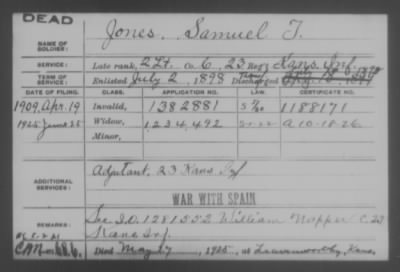 DEAD
Jones, Samuel T.
NAME OF SOLDIER:
SERVICE: Late rank, 2 Lt. Co. C, 23 Reg't Kans. Inf.
TERM OF SERVICE: Enlisted July 2, 1898 Discharged
DATE OF FILING. CLASS. APPLICATION NO. LAW. CERTIFICATE NO.
1909, Apr. 19 Invalid, 1382881 1188171
1925 June 25 Widow, 1234492 A 10-18-26
Minor,
ADDITIONAL SERVICES: Adjutant, 23 Kans Inf
WAR WITH SPAIN
REMARKS: See I.O. 1281552 William Napper C. 23
Kans Inf.
Died May 17, 1925, at Leavenworth, Kans.